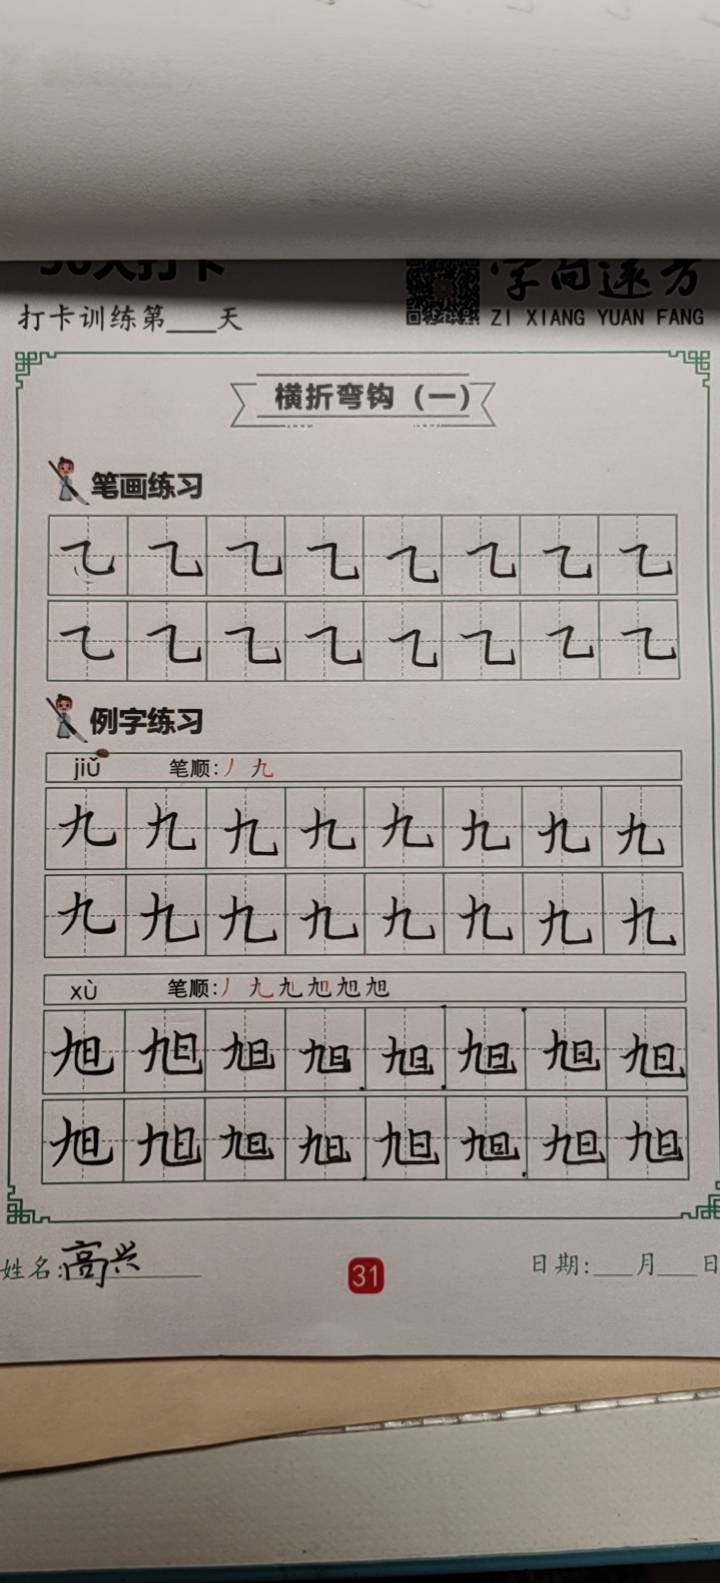 30天打卡
字向远方
打卡训练第___天
ZI XIANG YUAN FANG
横折弯钩（一）
笔画练习
㇈ ㇈ ㇈ ㇈ ㇈ ㇈ ㇈ ㇈
㇈ ㇈ ㇈ ㇈ ㇈ ㇈ ㇈ ㇈
例字练习
jiǔ 笔顺:丿 九
九 九 九 九 九 九 九 九
九 九 九 九 九 九 九 九
xù 笔顺:丿 九 九 旭 旭 旭
旭 旭 旭 旭 旭 旭 旭 旭
旭 旭 旭 旭 旭 旭 旭 旭
姓名:高兴
31
日期:___月___日